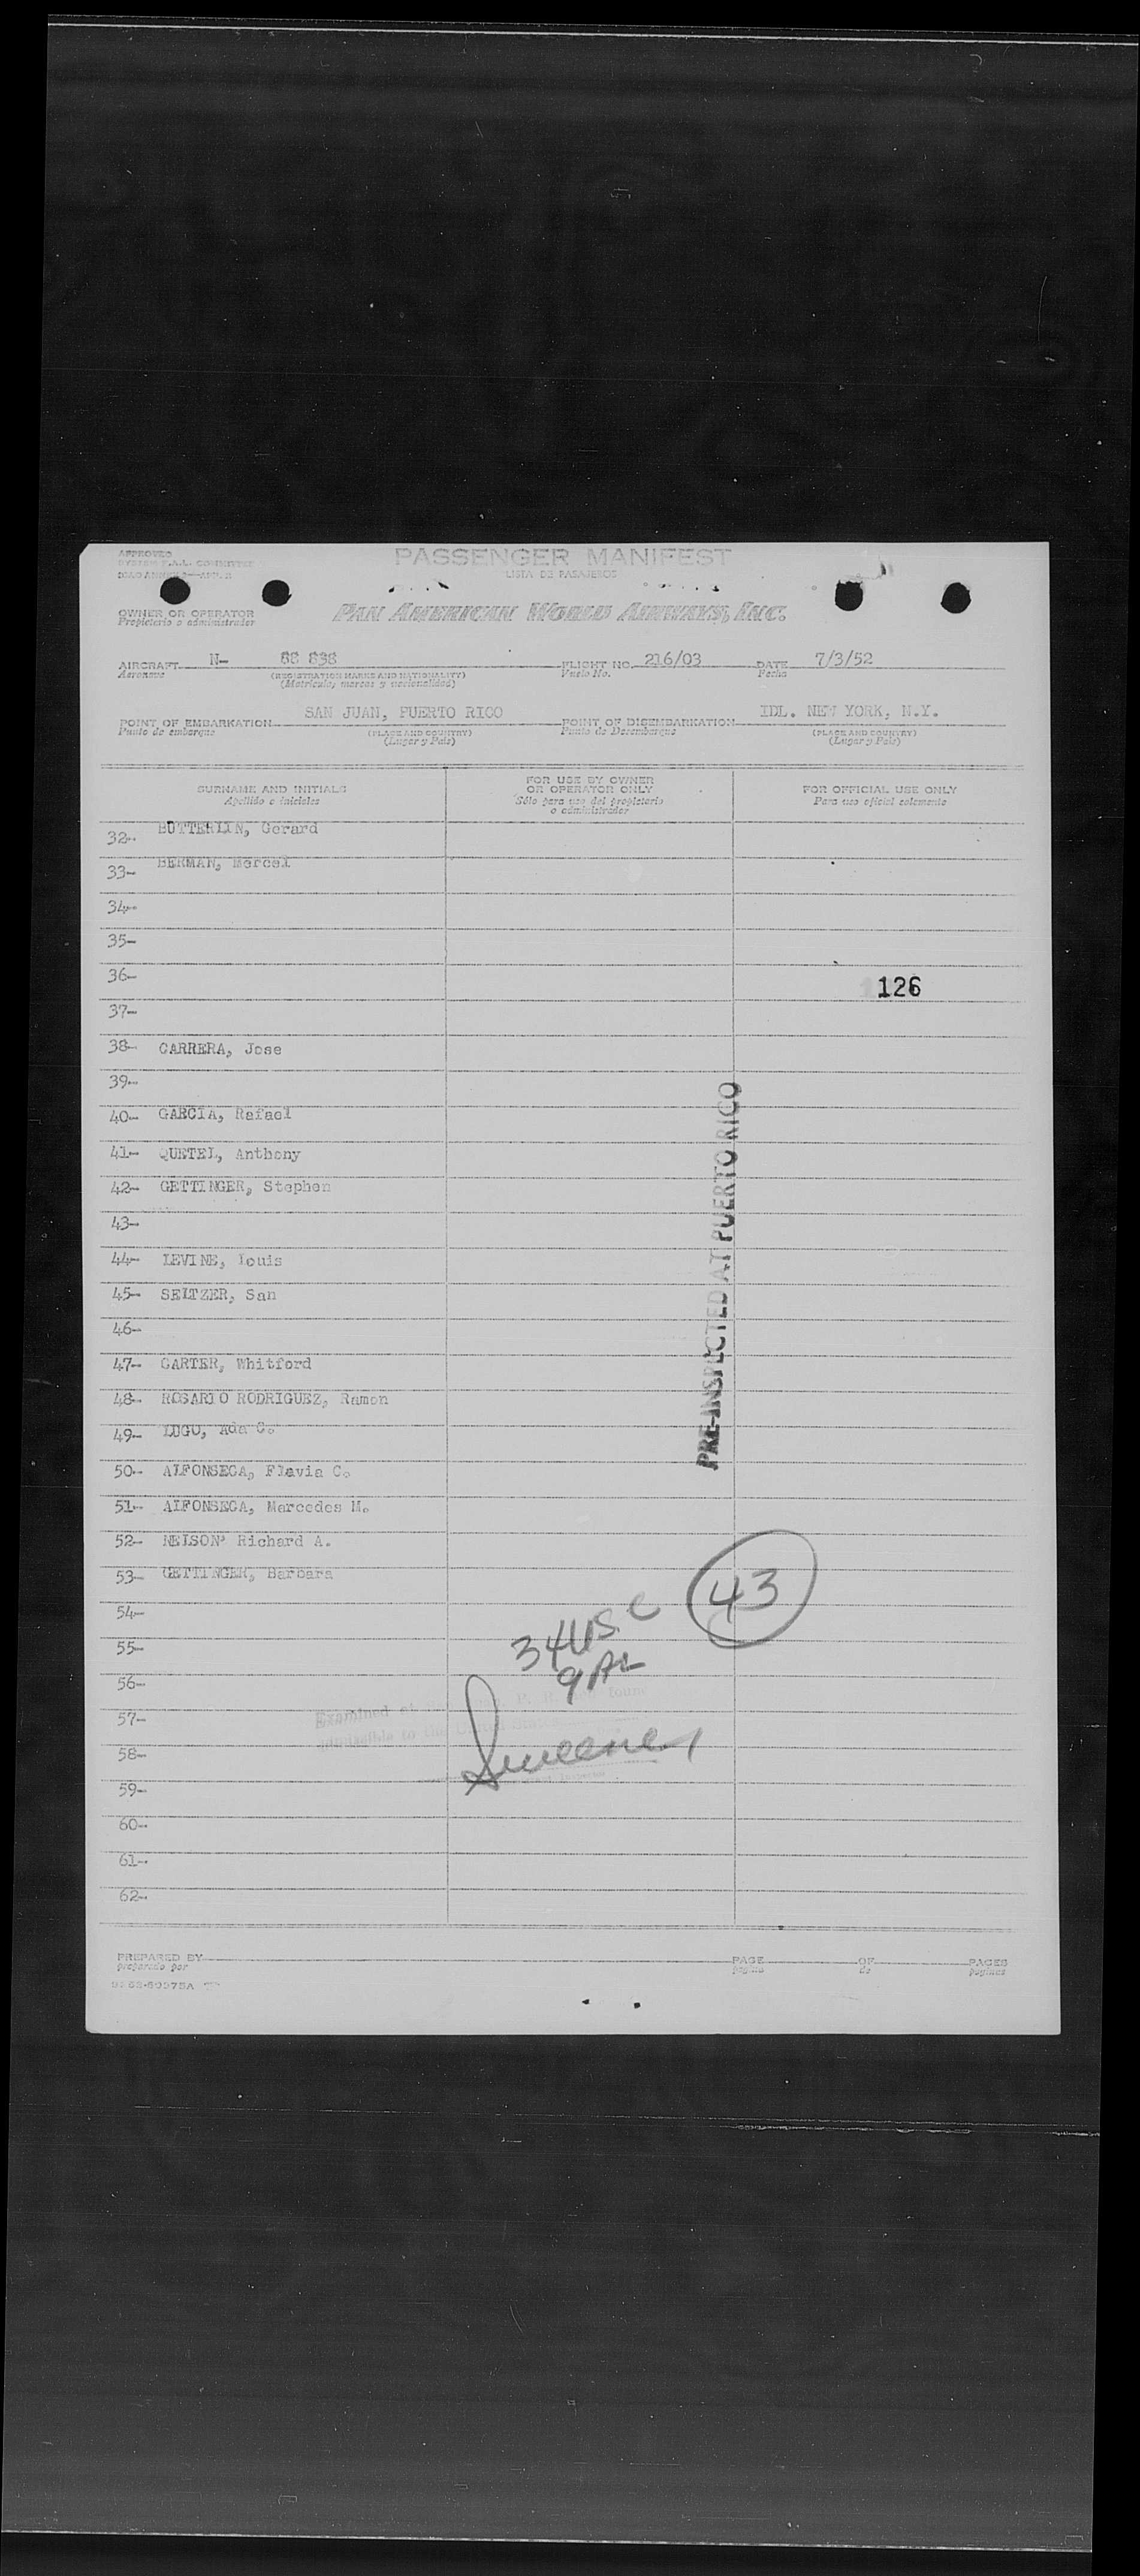 APPROVED
SYSTEM F.A.L. COMMITTEE
PASSENGER MANIFEST
LISTA DE PASAJEROS
OWNER OR OPERATOR
Propietario o administrador
PAN AMERICAN WORLD AIRWAYS, INC.
AIRCRAFT N- 88 838 FLIGHT NO. 216/03 DATE 7/3/52
Aeronave (REGISTRATION MARKS AND NATIONALITY) Vuelo No. Fecha
(Matrícula, marcas y nacionalidad)
POINT OF EMBARKATION SAN JUAN, PUERTO RICO POINT OF DISEMBARKATION IDL. NEW YORK, N.Y.
Punto de embarque (PLACE AND COUNTRY) Punto de Desembarque (PLACE AND COUNTRY)
(Lugar y País) (Lugar y País)
SURNAME AND INITIALS FOR USE BY OWNER OR OPERATOR ONLY FOR OFFICIAL USE ONLY
Apellido e iniciales Sólo para uso del propietario o administrador Para uso oficial solamente
32- BUTTERLIN, Gerard
33- BERMAN, Marcel
34-
35-
36-
126
37-
38- CARRERA, Jose
39-
40- GARCIA, Rafael
41- QUETEL, Anthony
42- GETTINGER, Stephen
43-
44- LEVINE, Louis
45- SELTZER, San
46-
47- CARTER, Whitford
48- ROSARIO RODRIGUEZ, Ramon
49- LUGO, Ada C.
50- ALFONSECA, Flavia C.
51- ALFONSECA, Mercedes M.
52- NELSON, Richard A.
53- GETTINGER, Barbara
PRE-INSPECTED AT PUERTO RICO
54-
43
55-
34 US C
56-
9 AL
57-
Examined at San Juan, P. R. and found
admissible to the United States
58-
Sweeney
59-
60-
61-
62-
PREPARED BY PAGE OF PAGES
preparado por página de páginas